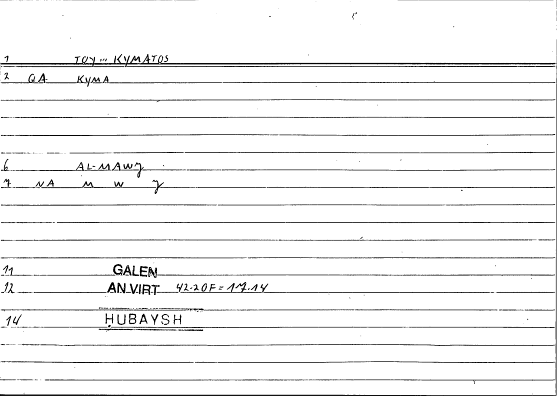 1 ΤΟΥ... ΚΥΜΑΤΟS
2 QA ΚΥΜΑ
6 AL-MAWJ
7 NA M W J
11 GALEN
12 AN VIRT 42.20F = 17.14
14 ḤUBAYSH